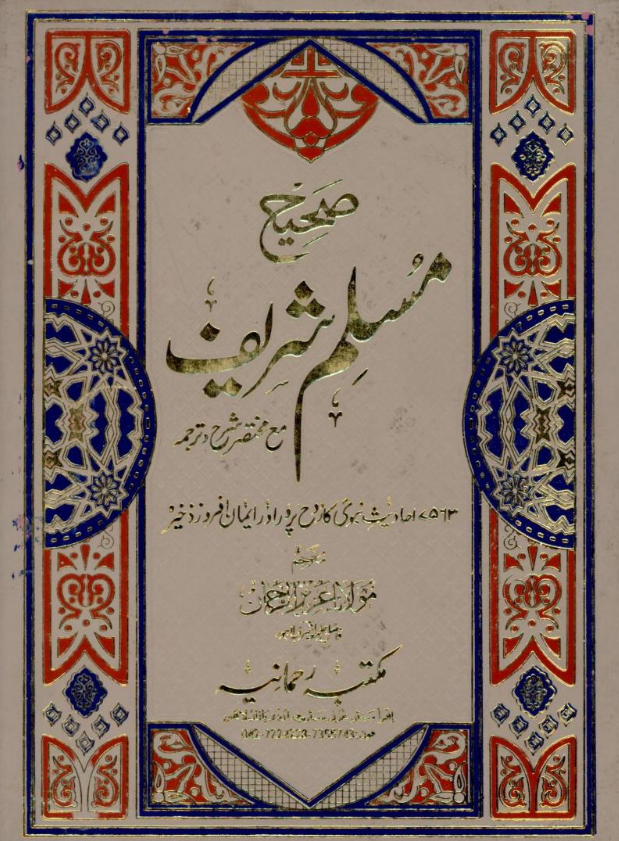 صحیح
مسلم شریف
مع مختصر شرح و ترجمہ
۷۵۶۳ احادیثِ نبوی کا روح پرور اور ایمان افروز ذخیرہ
مترجم
مولانا عزیز الرحمن
مکتبہ رحمانیہ